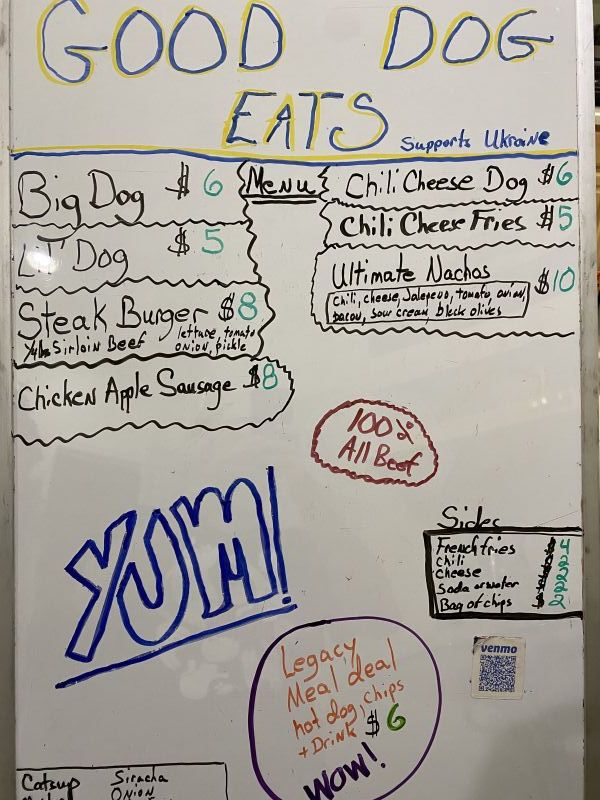 GOOD DOG
EATS
Supports Ukraine
Menu
Big Dog $6
Lil Dog $5
Steak Burger $8
Sirloin Beef
lettuce, tomato
onion, pickle
Chicken Apple Sausage $8
Chili Cheese Dog $6
Chili Cheese Fries $5
Ultimate Nachos $10
Chili, cheese, Jalepeno, tomato, onion,
bacon, sour cream, black olives
100%
All Beef
YUM!
Sides
French fries
chili
cheese
Soda or water
Bag of chips
venmo
Legacy
Meal deal
hot dog, chips
+ Drink $6
WOW!
Catsup Siracha
ONION